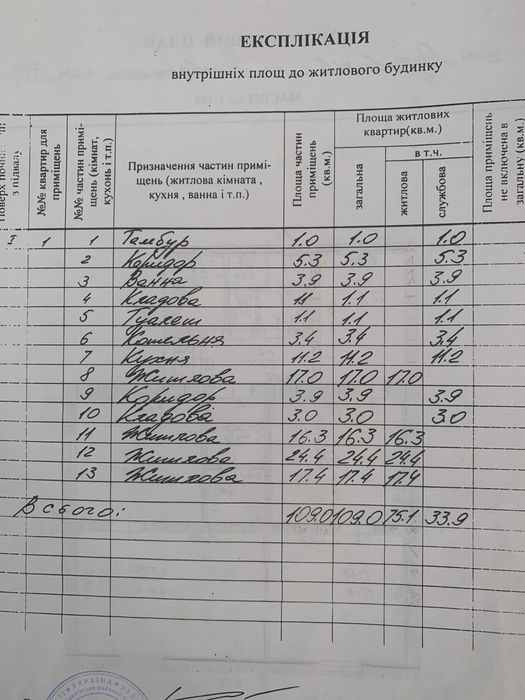 ЕКСПЛІКАЦІЯ
внутрішніх площ до житлового будинку
з підвалу
№№ квартир для приміщень
№№ частин примі-
щень (кімнат,
кухонь і т.п.)
Призначення частин примі-
щень (житлова кімната ,
кухня , ванна і т.п.)
Площа частин
приміщень
(кв.м.)
Площа житлових
квартир(кв.м.)
загальна
в т.ч.
житлова
службова
Площа приміщень
не включена в
загальну (кв.м.)
I 1 1 Тамбур 1.0 1.0 1.0
2 Коридор 5.3 5.3 5.3
3 Ванна 3.9 3.9 3.9
4 Кладова 1.1 1.1 1.1
5 Туалет 1.1 1.1 1.1
6 Котельня 3.4 3.4 3.4
7 Кухня 11.2 11.2 11.2
8 Житлова 17.0 17.0 17.0
9 Коридор 3.9 3.9 3.9
10 Кладова 3.0 3.0 3.0
11 Житлова 16.3 16.3 16.3
12 Житлова 24.4 24.4 24.4
13 Житлова 17.4 17.4 17.4
Всього: 109.0 109.0 75.1 33.9
УКРАЇНА